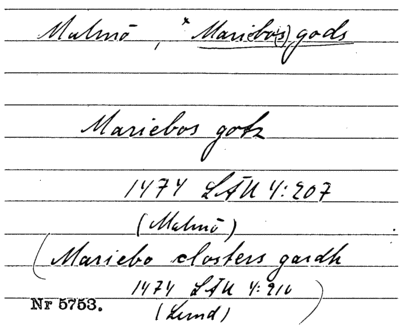 Malmö, *Maribo(s) gods
Mariebos gotz
1474 LÄU 4:207
(Malmö)
(Mariebo closters gardh
1474 LÄU 4:210)
(Lund)
Nr 5753.